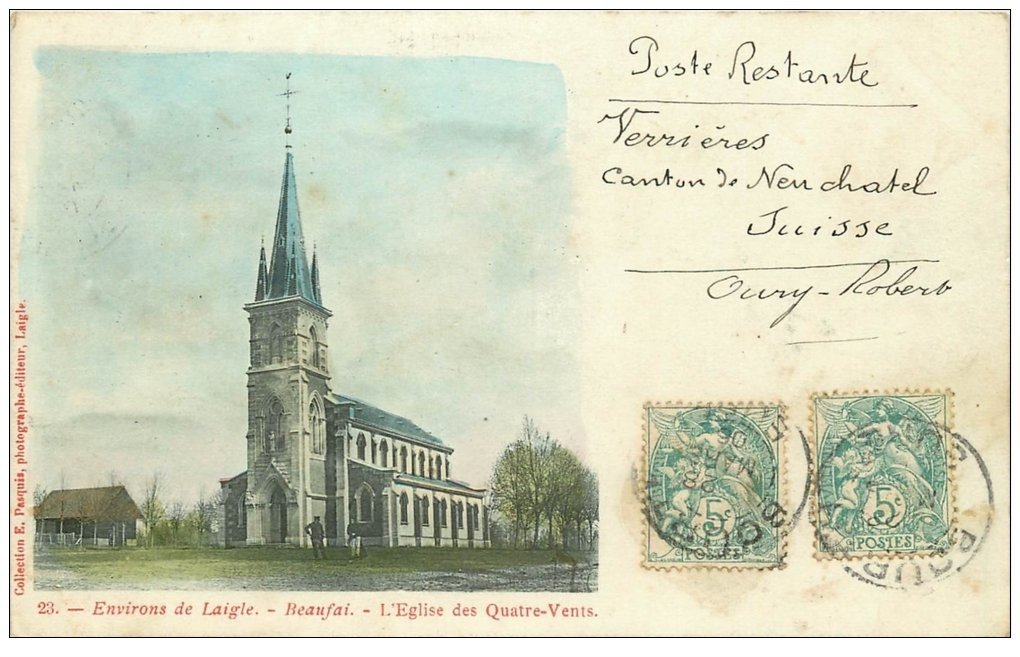 Poste Restante
Verrières
Canton de Neuchatel
Suisse
Oury-Robert
5c
POSTES
5c
POSTES
Collection E. Pasquis, photographe-éditeur, Laigle.
23. — Environs de Laigle. - Beaufai. - L'Eglise des Quatre-Vents.